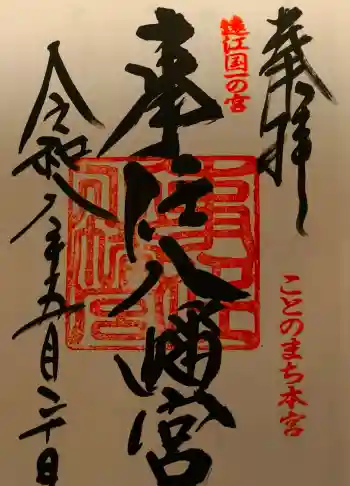 奉拝
ことのまち本宮
遠江国一の宮
事任八幡宮
令和八年五月二十日